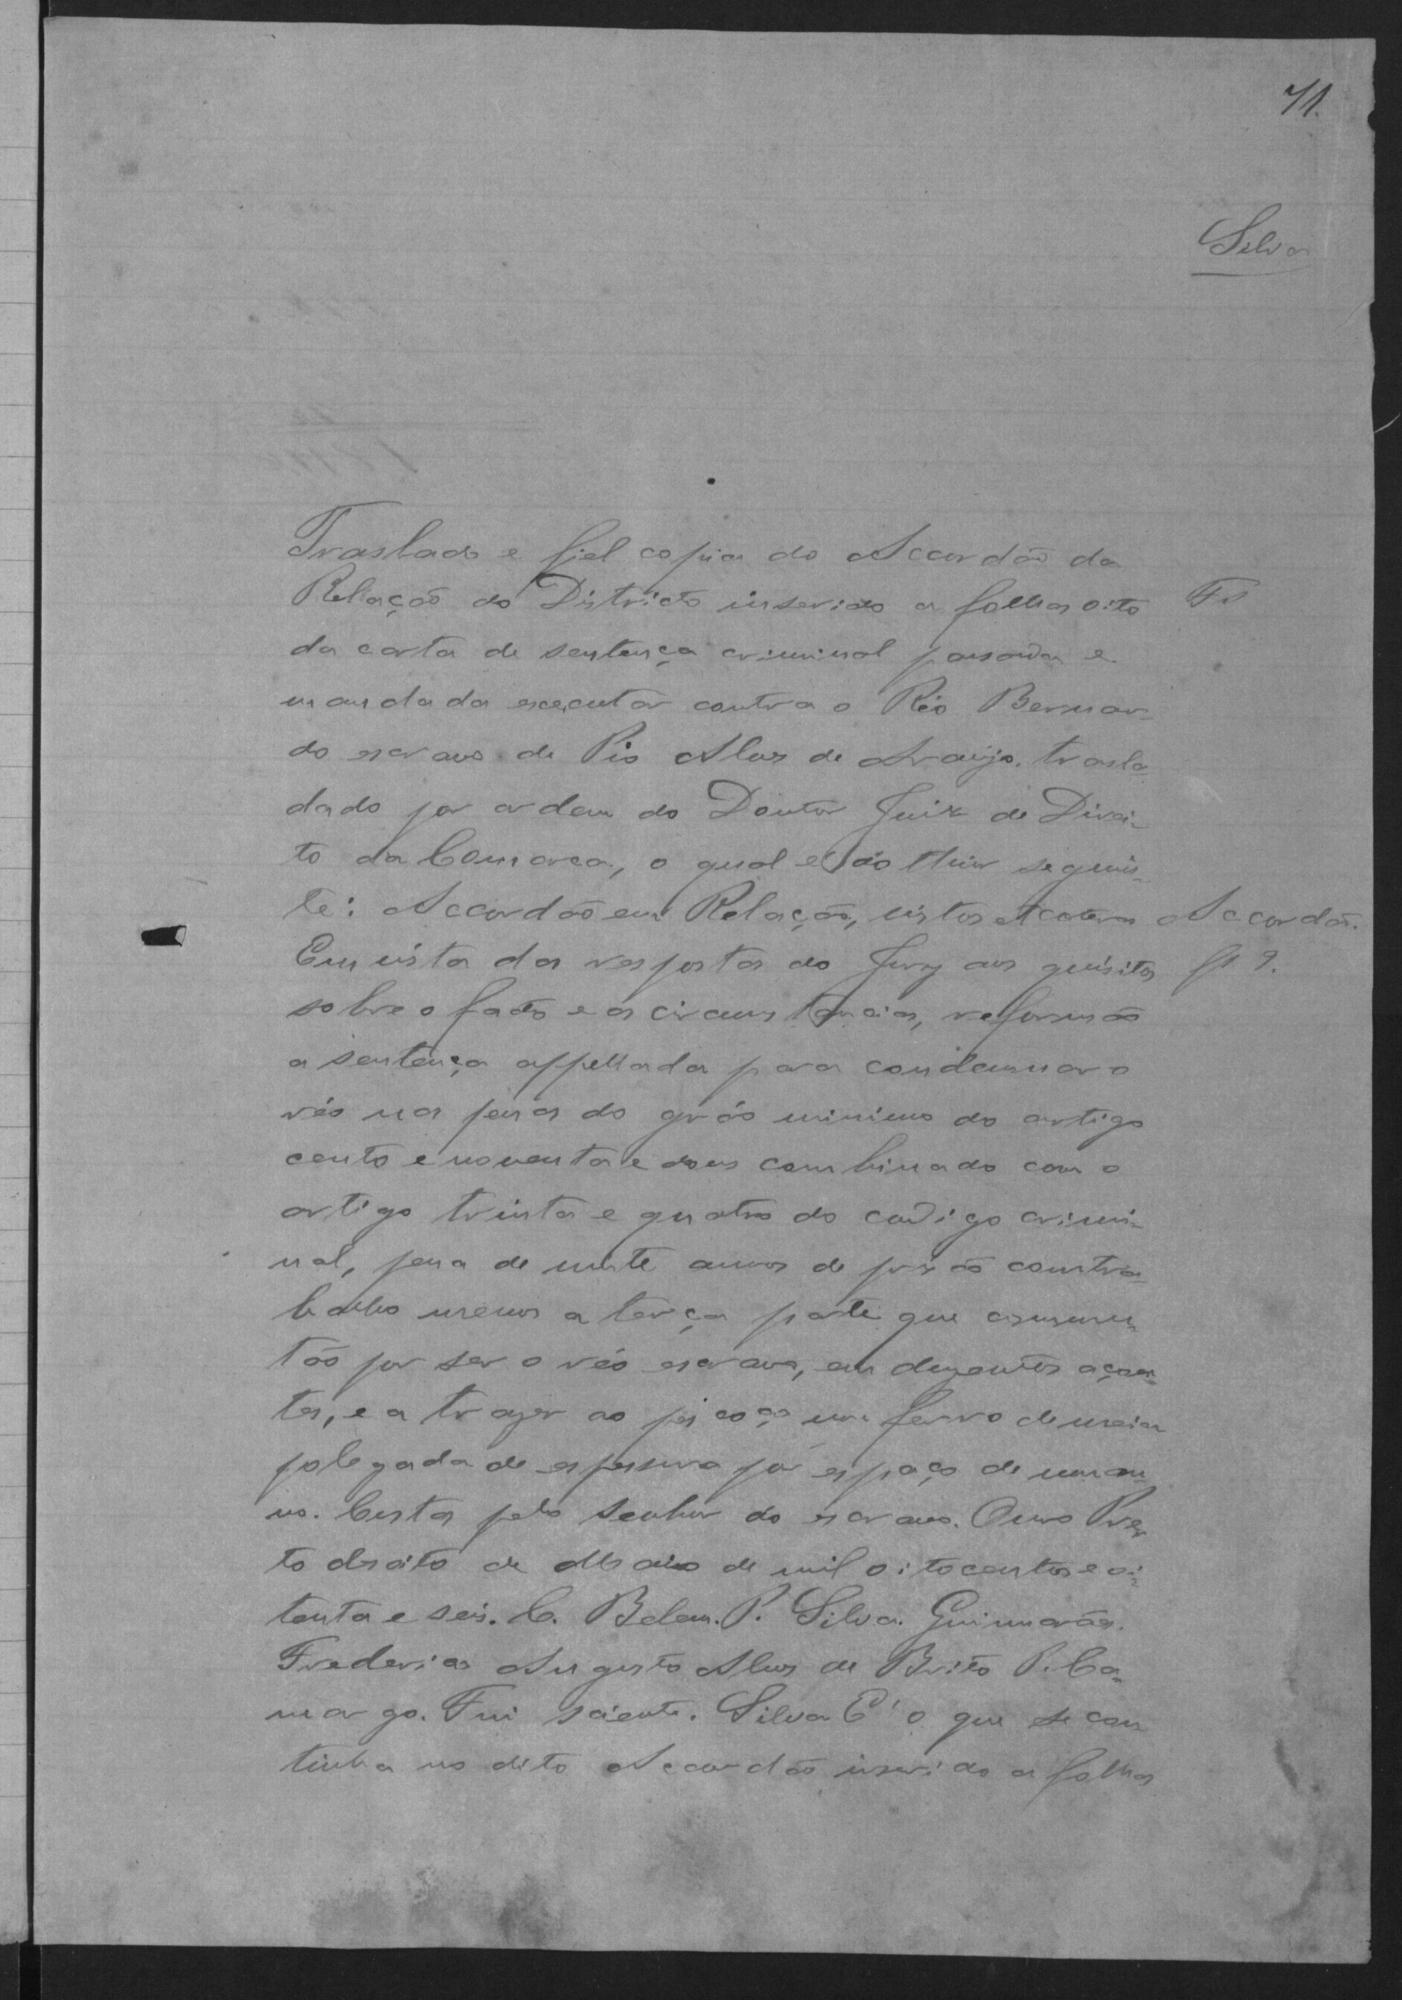 71.
Silva
Traslado e fiel copia do Accordão da
Relação do Districto inserido a folhas oito
da carta de sentença criminal passada e
mandada executar contra o Réo Bernar-
do escravo de Pio Alves de Araujo, trasla-
dado por ordem do Doutor Juiz de Direi-
to da Comarca, o qual é do theor seguin-
te: Accordão em Relação, vistos etcetera Accordão.
Em vista das respostas do Jury aos quisitos fl 9.
sobre o facto e as circumstancias, reformão
a sentença appellada para condemnar o
réo nas penas do gráo minimo do artigo
cento e noventa e dous combinado com o
artigo trinta e quatro do codigo crimi-
nal, pena de vinte annos de prisão com tra-
balho menos a terça parte que commu-
tão por ser o réo escravo, em duzentos açoi-
tes, e a trazer ao pescoço um ferro de meia
polegada de espessura por espaço de um an-
no. Custas pelo senhor do escravo. Ouro Pre-
to desoito de Maio de mil oitocentos e oi-
tenta e seis. C. Belem. P. Silva Guimarães.
Frederico Augusto Alves de Brito P. Ca-
margo. Fui sciente. Silva É o que se con
tinha no dito Accordão inserido a folhas